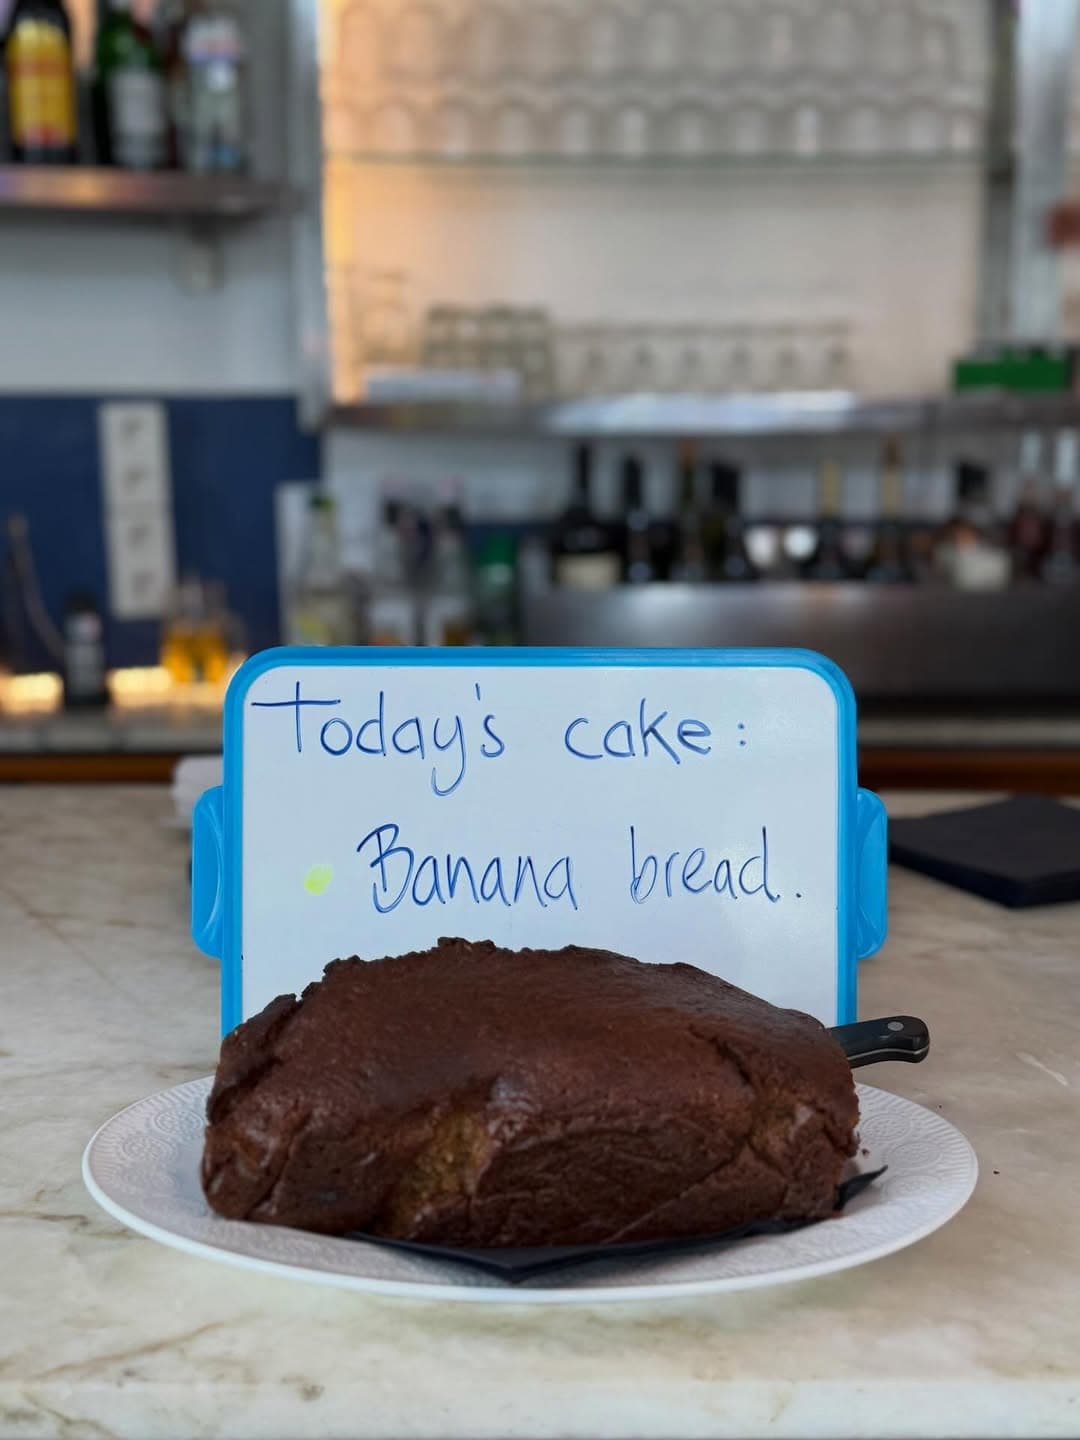 Today's cake:
Banana bread.